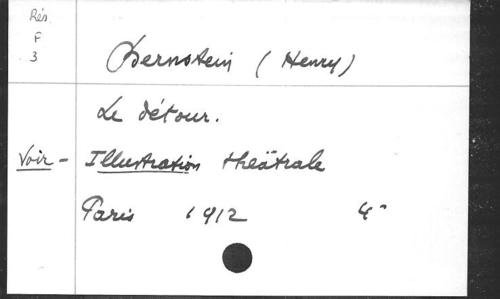 Rés.
F
3
Bernstein (Henry)
Le détour.
Voir - Illustration théâtrale
Paris 1912 4°